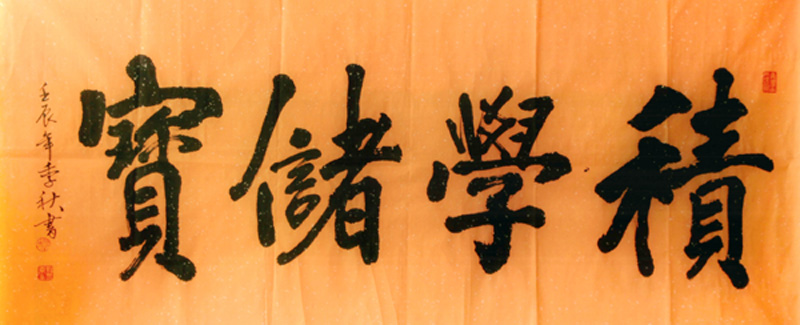 積學儲寶
壬辰年季秋書